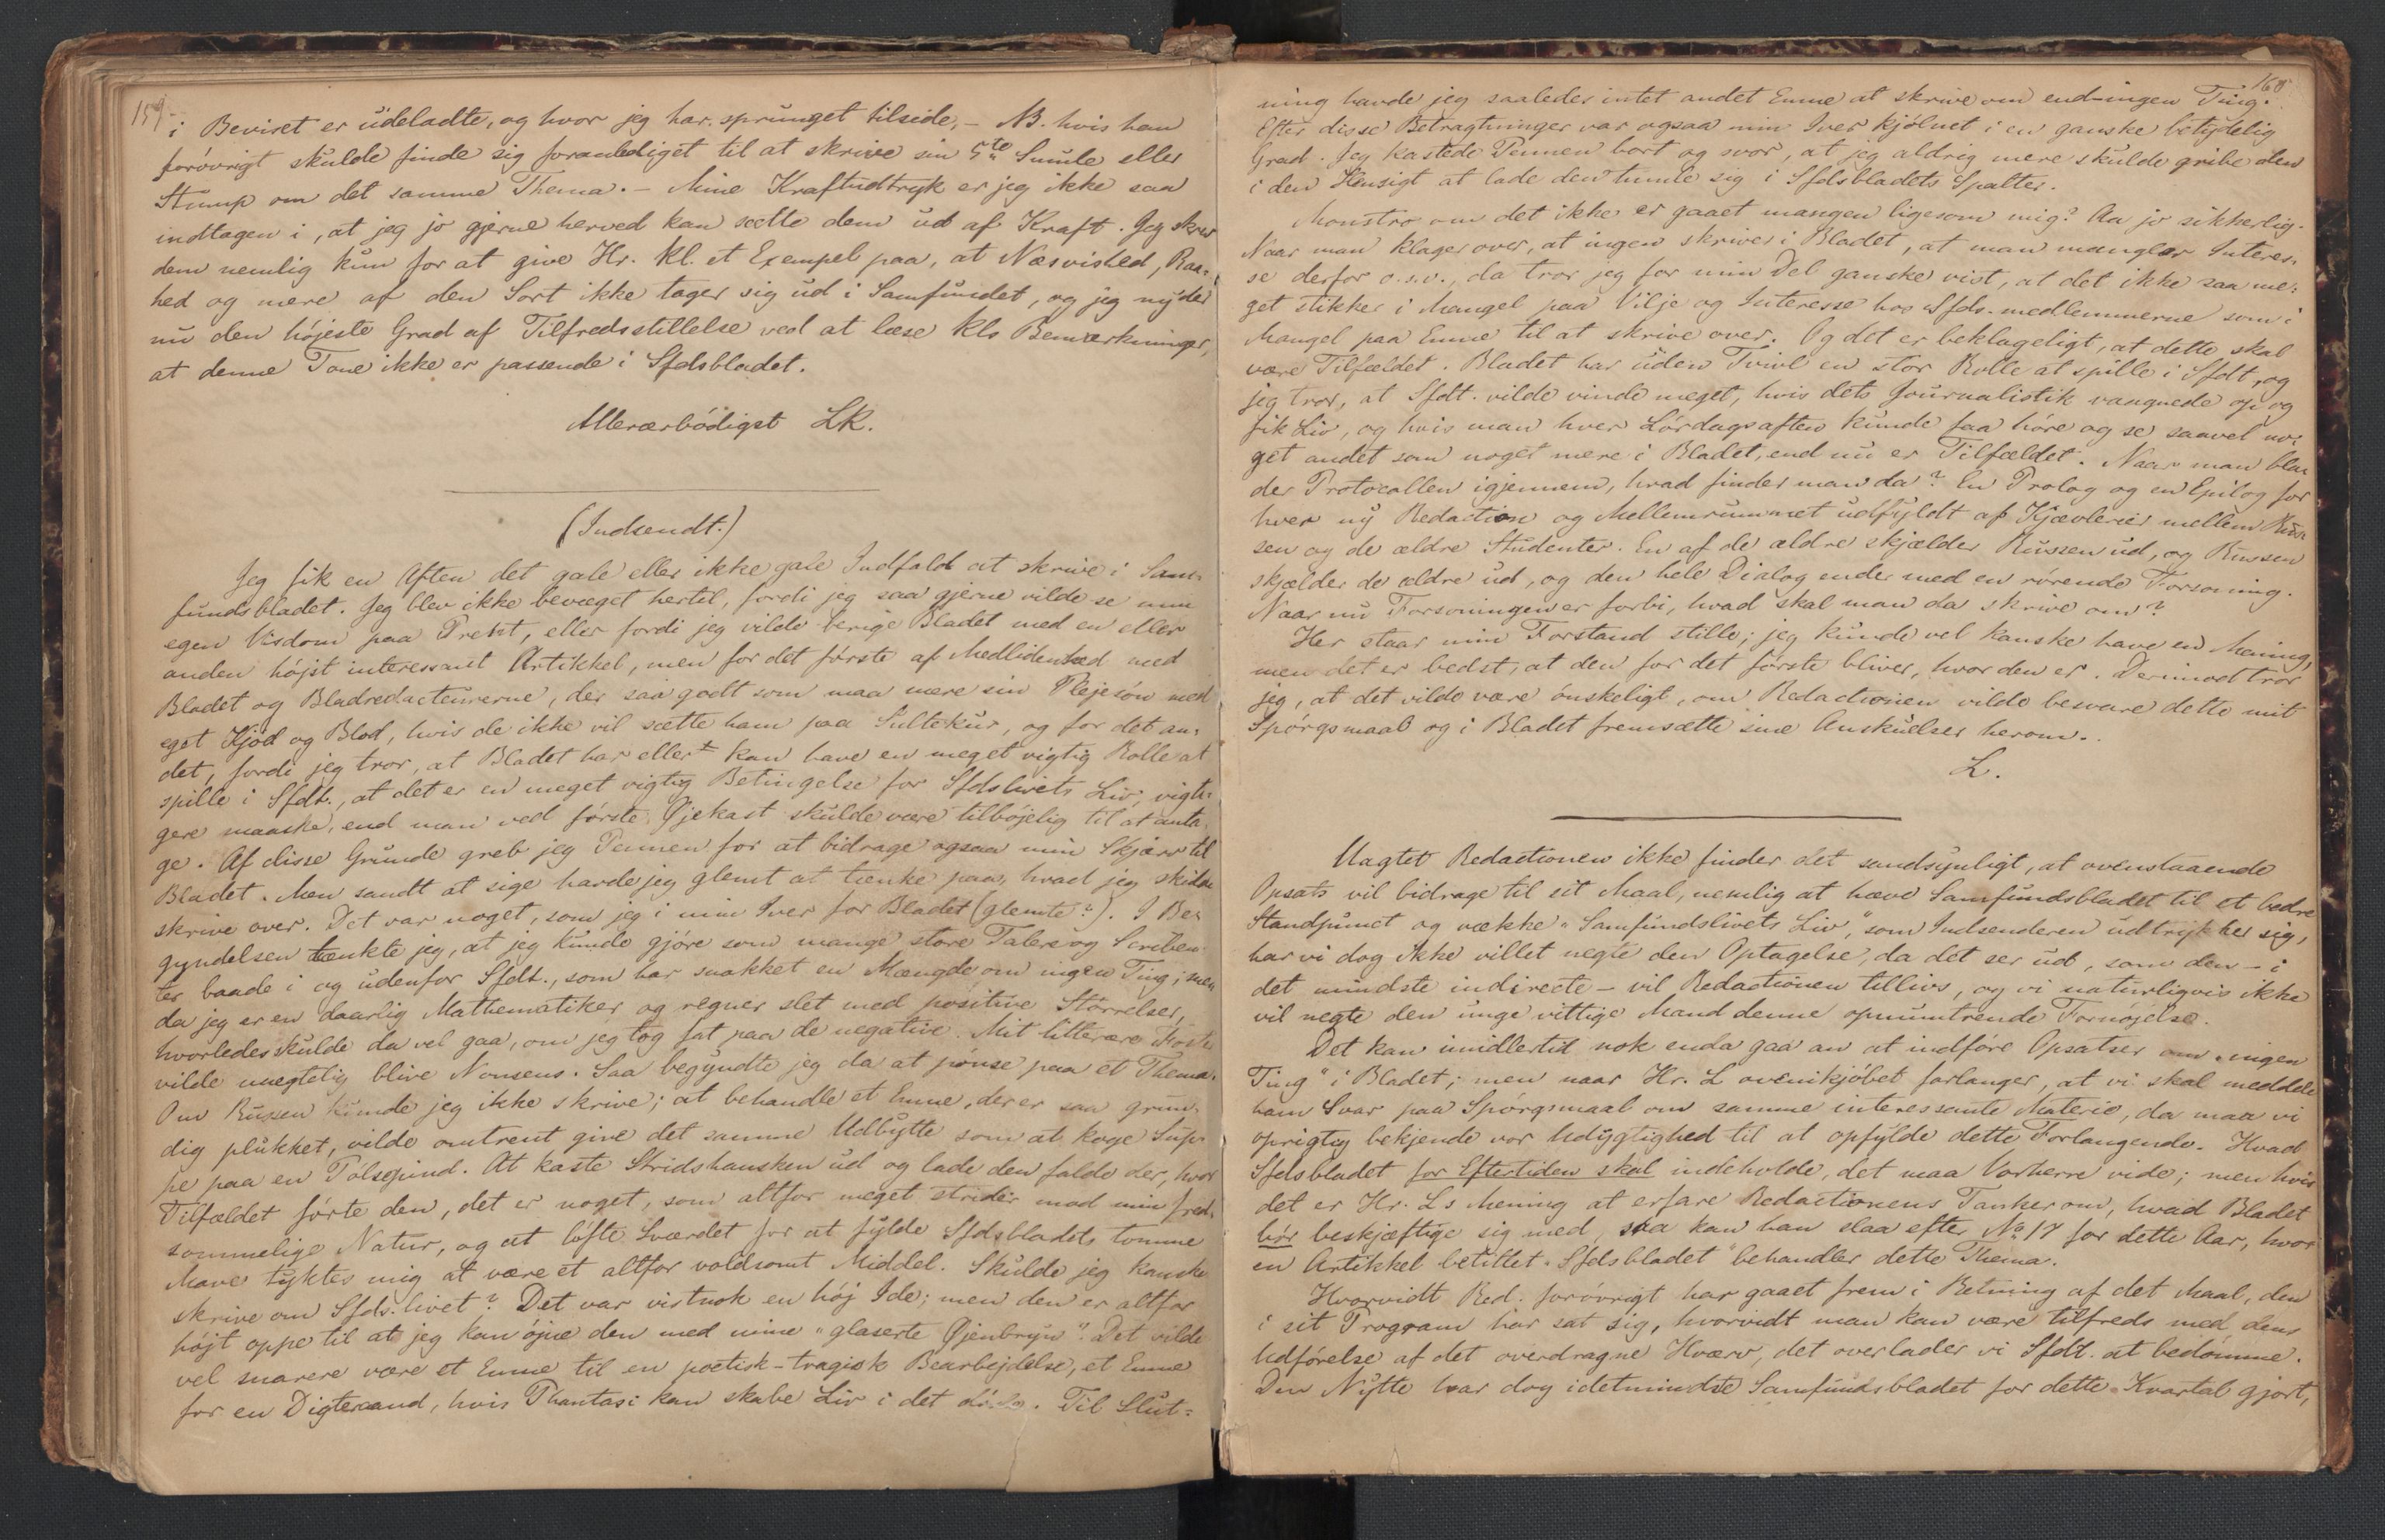 159.
i Beviset er udeladte, og hvor jeg har sprunget tilside, – NB. hvis han
forövrigt skulde finde sig foranlediget til at skrive sin 5te Smule eller
Stump om det samme Thema. – Mine Kraftudtryk er jeg ikke saa
indtagen i, at jeg jo gjerne herved kan sætte dem ud af Kraft. Jeg skrev
dem nemlig kun for at give Hr. Kl. et Exempel paa, at Næsvished, Raa-
hed og mere af den Sort ikke tager sig ud i Samfundet, og jeg nyder
nu den højeste Grad af Tilfredsstillelse ved at læse Kls Bemærkninger,
at denne Tone ikke er passende i Sfdsbladet.
Allerærbödigst Lk.
(Indsendt.)
Jeg fik en Aften det gale eller ikke gale Indfald at skrive i Sam-
fundsbladet. Jeg blev ikke bevæget hertil, fordi jeg saa gjerne vilde se min
egen Visdom paa Prent, eller fordi jeg vilde berige Bladet med en eller
anden höjst interessant Artikkel, men for det förste af Medlidenhed med
Bladet og Bladredacteurerne, der saa godt som maa nære sin Plejesön med
eget Kjöd og Blod, hvis de ikke vil sætte ham paa Sultekur, og for det an-
det, fordi jeg tror, at Bladet har ellert kan have en meget vigtig Rolle at
spille i Sfdt., at det er en meget vigtig Betingelse for Sfdslivets Liv; vigti-
gere maaske, end man ved förste Øjekast skulde være tilböjelig til at anta-
ge. Af disse Grunde greb jeg Pennen for at bidrage ogsaa min Skjærv til
Bladet. Men sandt at sige havde jeg glemt at tænke paa, hvad jeg skulde
skrive over. Det var noget, som jeg i min Iver for Bladet (glemte?). I Be-
gyndelsen tænkte jeg, at jeg kunde gjöre som mange store Talere og Scriben-
ter baade i og udenfor Sfdt., som har snakket en Mængde om ingen Ting; men
da jeg er en daarlig Mathematiker og regner slet med positive Störrelser,
hvorledes skulde da vel gaa, om jeg tog fat paa de negative. Mit litterære Foster
vilde unegtelig blive Nonsens. Saa begyndte jeg da at pönse paa et Thema.
Om Russen kunde jeg ikke skrive; at behandle et Emne, der er saa grun-
dig plukket, vilde omtrent give det samme Udbytte som at koge Sup-
pe paa en Pölsepind. At kaste Stridshansken ud og lade den falde der, hvor
Tilfældet förte den, det er noget, som altfor meget strider mod min fred-
sommelige Natur, og at löfte Sværdet for at fylde Sfdsbladets tomme
Mave tyktes mig at være et altfor voldsomt Middel. Skulde jeg kanske
skrive om Sfds.livet? Det var vistnok en höj Ide; men den er altfor
höjt oppe til at jeg kan öjne den med mine "glaserte Øjenbryn". Det vilde
vel snarere være et Emne til en poetisk-tragisk Bearbejdelse, et Emne
for en Digteraand, hvis Phantasi kan skabe Liv i det döde. Til Slut-
160
ning havde jeg saaledes intet andet Emne at skrive om end-ingen Ting.
Efter disse Betragtninger var ogsaa min Iver kjölnet i en ganske betydelig
Grad. Jeg kastede Pennen bort og svor, at jeg aldrig mere skulde gribe den
i den Hensigt at lade den tumle sig i Sfdsbladets Spalter.
Monstro om det ikke er gaaet mangen ligesom mig? Aa jo sikkerlig.
Naar man klager over, at ingen skriver i Bladet, at man mangler Interes-
se derfor o.s.v., da tror jeg for min Del ganske vist, at det ikke saa me-
get stikker i Mangel paa Vilje og Interesse hos Sfds-medlemmerne som i
Mangel paa Emne til at skrive over. Og det er beklageligt, at dette skal
være Tilfældet. Bladet har uden Tvivl en stor Rolle at spille i Sfdt, og
jeg tror, at Sfdt. vilde vinde meget, hvis dets Journalistik vaagnede op og
fik Liv, og hvis man hver Lördagsaften kunde faa höre og se saavel no-
get andet som noget mere i Bladet, end nu er Tilfældet. Naar man bla-
der Protocollen igjennem, hvad finder man da? En Prolog og en Epilog for
hver ny Redaction og Mellemrummet udfyldt af Kjævlerier mellem Rus-
sen og de ældre Studenter. En af de ældre skjælder Russen ud, og Russen
skjælder de ældre ud, og den hele Dialog ender med en rörende Forsoning.
Naar nu Forsoningen er forbi, hvad skal man da skrive om?
Her staar min Forstand stille; jeg kunde vel kanske have en Mening,
men det er bedst, at den for det förste bliver, hvor den er. Derimod tror
jeg, at det vilde være önskeligt, om Redactionen vilde besvare dette mit
Spörgsmaal og i Bladet fremsætte sine Anskuelser herom.
L.
Uagtet Redactionen ikke finder det sandsynligt, at ovenstaaende
Opsats vil bidrage til sit Maal, nemlig at hæve Samfundsbladet til et bedre
Standpunct og vække "Samfundslivets Liv", som Indsenderen udtrykker sig,
har vi dog ikke villet negte den Optagelse, da det ser ud, som den – i
det mindste indirecte – vil Redactionen tillivs, og vi naturligvis ikke
vil negte den unge vittige Mand denne opmuntrende Fornöjelse.
Det kan imidlertid nok enda gaa an at indföre Opsatser om "ingen
Ting" i Bladet; men naar Hr. L ovenikjöbet forlanger, at vi skal meddele
ham Svar paa Spörgsmaal om samme interessante Materie, da maa vi
oprigtig bekjende vor Udygtighed til at opfylde dette Forlangende. Hvad
Sfdsbladet for Eftertiden skal indeholde, det maa Vorherre vide; men hvis
det er Hr. Ls Mening at erfare Redactionens Tanker om, hvad Bladet
bör beskjæftige sig med, saa kan han slaa efter No 17 for dette Aar, hvor
en Artikkel betitlet "Sfdsbladet" behandler dette Thema.
Hvorvidt Red. forövrigt har gaaet frem i Retning af det Maal, den
i sit Program har sat sig, hvorvidt man kan være tilfreds med dens
Udförelse af det overdragne Hverv, det overlader vi Sfdt. at bedömme.
Den Nytte har dog idetmindste Samfundsbladet for dette Kvartal gjort,